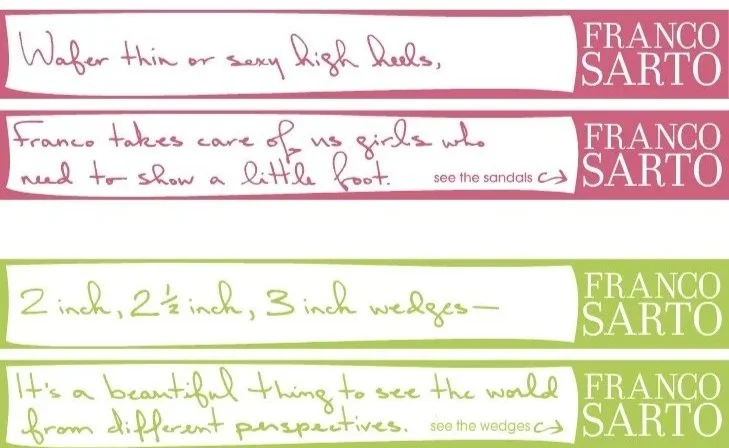 Wafer thin or sexy high heels,
FRANCO
SARTO
Franco takes care of us girls who
need to show a little foot.
see the sandals
FRANCO
SARTO
2 inch, 2½ inch, 3 inch wedges—
FRANCO
SARTO
It's a beautiful thing to see the world
from different perspectives.
see the wedges
FRANCO
SARTO